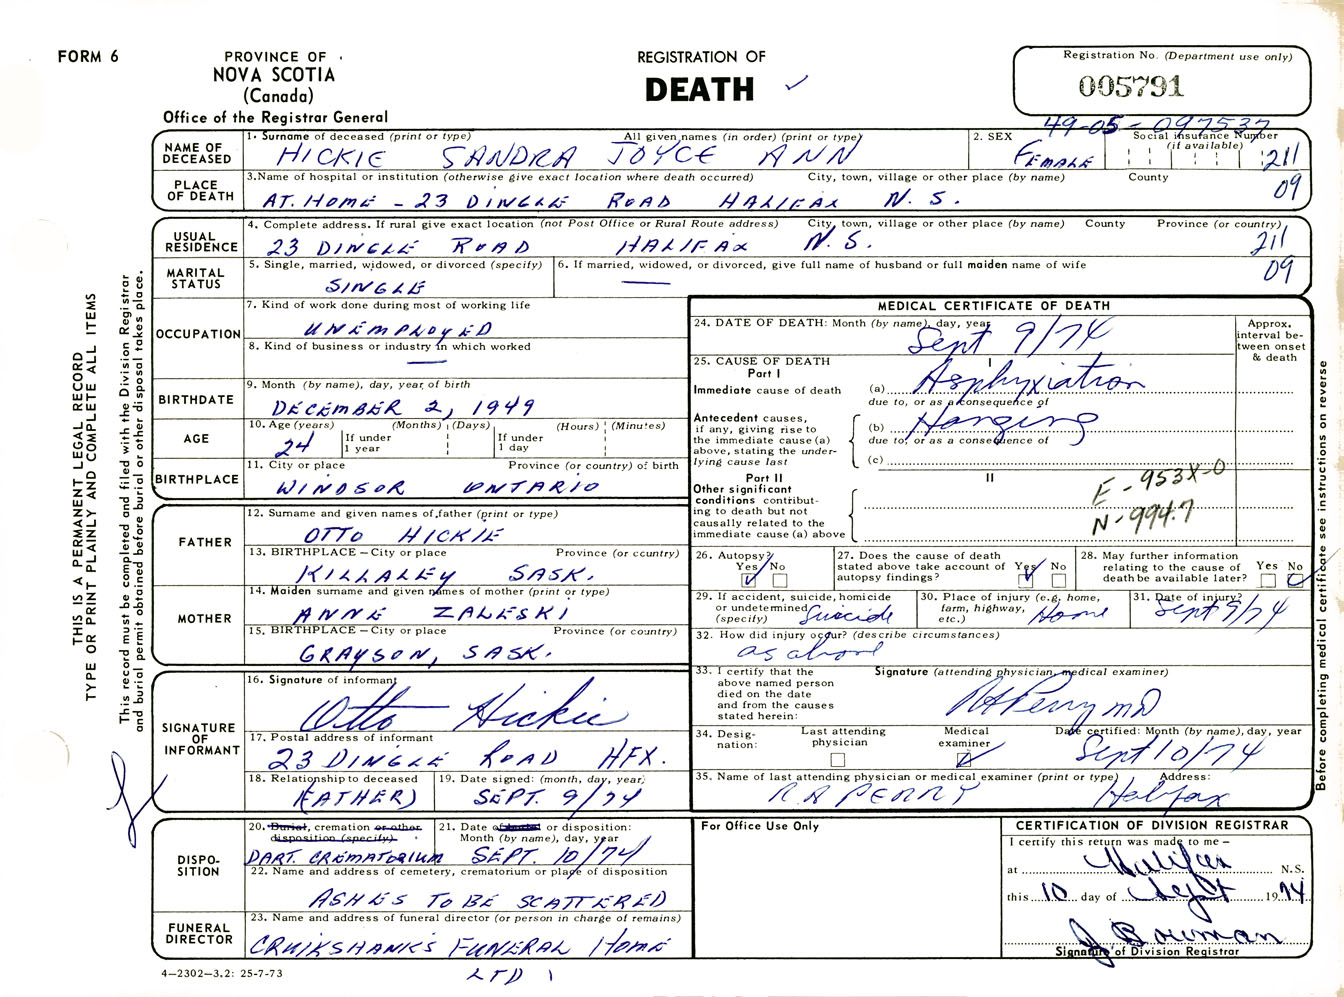 FORM 6
PROVINCE OF
NOVA SCOTIA
(Canada)
Office of the Registrar General
REGISTRATION OF
DEATH
Registration No. (Department use only)
005791
49-05-097537
NAME OF DECEASED
1. Surname of deceased (print or type) All given names (in order) (print or type)
HICKIE SANDRA JOYCE ANN
2. SEX
FEMALE
Social insurance Number
(if available)
211
PLACE OF DEATH
3. Name of hospital or institution (otherwise give exact location where death occurred) City, town, village or other place (by name) County
AT. HOME - 23 DINGLE ROAD HALIFAX N. S.
09
USUAL RESIDENCE
4. Complete address. If rural give exact location (not Post Office or Rural Route address) City, town, village or other place (by name) County Province (or country)
23 DINGLE ROAD HALIFAX N. S.
211
MARITAL STATUS
5. Single, married, widowed, or divorced (specify)
SINGLE
6. If married, widowed, or divorced, give full name of husband or full maiden name of wife
—
09
OCCUPATION
7. Kind of work done during most of working life
UNEMPLOYED
8. Kind of business or industry in which worked
—
BIRTHDATE
9. Month (by name), day, year of birth
DECEMBER 2, 1949
AGE
10. Age (years) (Months) (Days) (Hours) (Minutes)
24
If under 1 year
If under 1 day
BIRTHPLACE
11. City or place Province (or country) of birth
WINDSOR ONTARIO
FATHER
12. Surname and given names of father (print or type)
OTTO HICKIE
13. BIRTHPLACE — City or place Province (or country)
KILLALEY SASK.
MOTHER
14. Maiden surname and given names of mother (print or type)
ANNE ZALESKI
15. BIRTHPLACE — City or place Province (or country)
GRAYSON, SASK.
SIGNATURE OF INFORMANT
16. Signature of informant
Otto Hickie
17. Postal address of informant
23 DINGLE ROAD HFX.
18. Relationship to deceased
(FATHER)
19. Date signed: (month, day, year)
SEPT. 9/74
DISPO-SITION
20. Burial, cremation or other disposition (specify)
DART. CREMATORIUM
21. Date of burial or disposition: Month (by name), day, year
SEPT. 10/74
22. Name and address of cemetery, crematorium or place of disposition
ASHES TO BE SCATTERED
FUNERAL DIRECTOR
23. Name and address of funeral director (or person in charge of remains)
CRUIKSHANK'S FUNERAL HOME
LTD
4—2302—3.2: 25-7-73
MEDICAL CERTIFICATE OF DEATH
24. DATE OF DEATH: Month (by name), day, year
Sept 9/74
Approx. interval between onset & death
25. CAUSE OF DEATH
Part I
I
Immediate cause of death
(a) Asphyxiation
due to, or as a consequence of
Antecedent causes, if any, giving rise to the immediate cause (a) above, stating the underlying cause last
(b) Hanging
due to, or as a consequence of
(c)
Part II
II
Other significant conditions contributing to death but not causally related to the immediate cause (a) above
E-953X-0
N-994.7
26. Autopsy?
Yes No
27. Does the cause of death stated above take account of autopsy findings?
Yes No
28. May further information relating to the cause of death be available later?
Yes No
29. If accident, suicide, homicide or undetermined (specify)
Suicide
30. Place of injury (e.g. home, farm, highway, etc.)
Home
31. Date of injury?
Sept 9/74
32. How did injury occur? (describe circumstances)
as above
33. I certify that the above named person died on the date and from the causes stated herein:
Signature (attending physician, medical examiner)
RA Perry MD
34. Designation:
Last attending physician
Medical examiner
Date certified: Month (by name), day, year
Sept 10/74
35. Name of last attending physician or medical examiner (print or type) Address:
R A PERRY Halifax
For Office Use Only
CERTIFICATION OF DIVISION REGISTRAR
I certify this return was made to me —
at Halifax N.S.
this 10 day of Sept 1974
J Bowman
Signature of Division Registrar
THIS IS A PERMANENT LEGAL RECORD
TYPE OR PRINT PLAINLY AND COMPLETE ALL ITEMS
This record must be completed and filed with the Division Registrar
and burial permit obtained before burial or other disposal takes place.
Before completing medical certificate see instructions on reverse